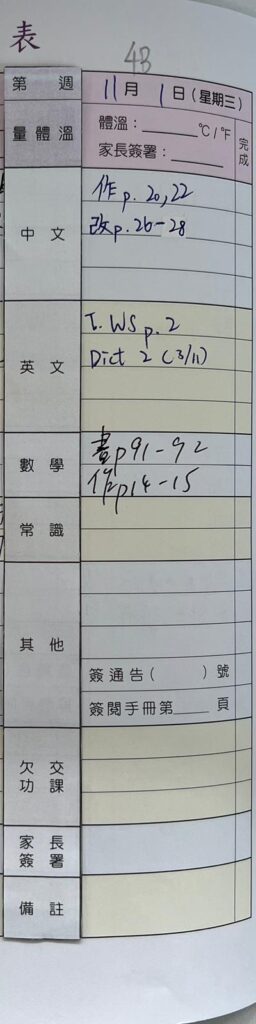 表
4B
第 週 11月 1日(星期三)
量體溫 體溫:______°C/°F 完成
家長簽署:______
中文 作p.20,22
改p.26-28
英文 T. WS p.2
Dict 2 (3/11)
數學 書p91-92
作p14-15
常識
其他
簽通告( )號
簽閱手冊第____頁
欠交功課
家長簽署
備註